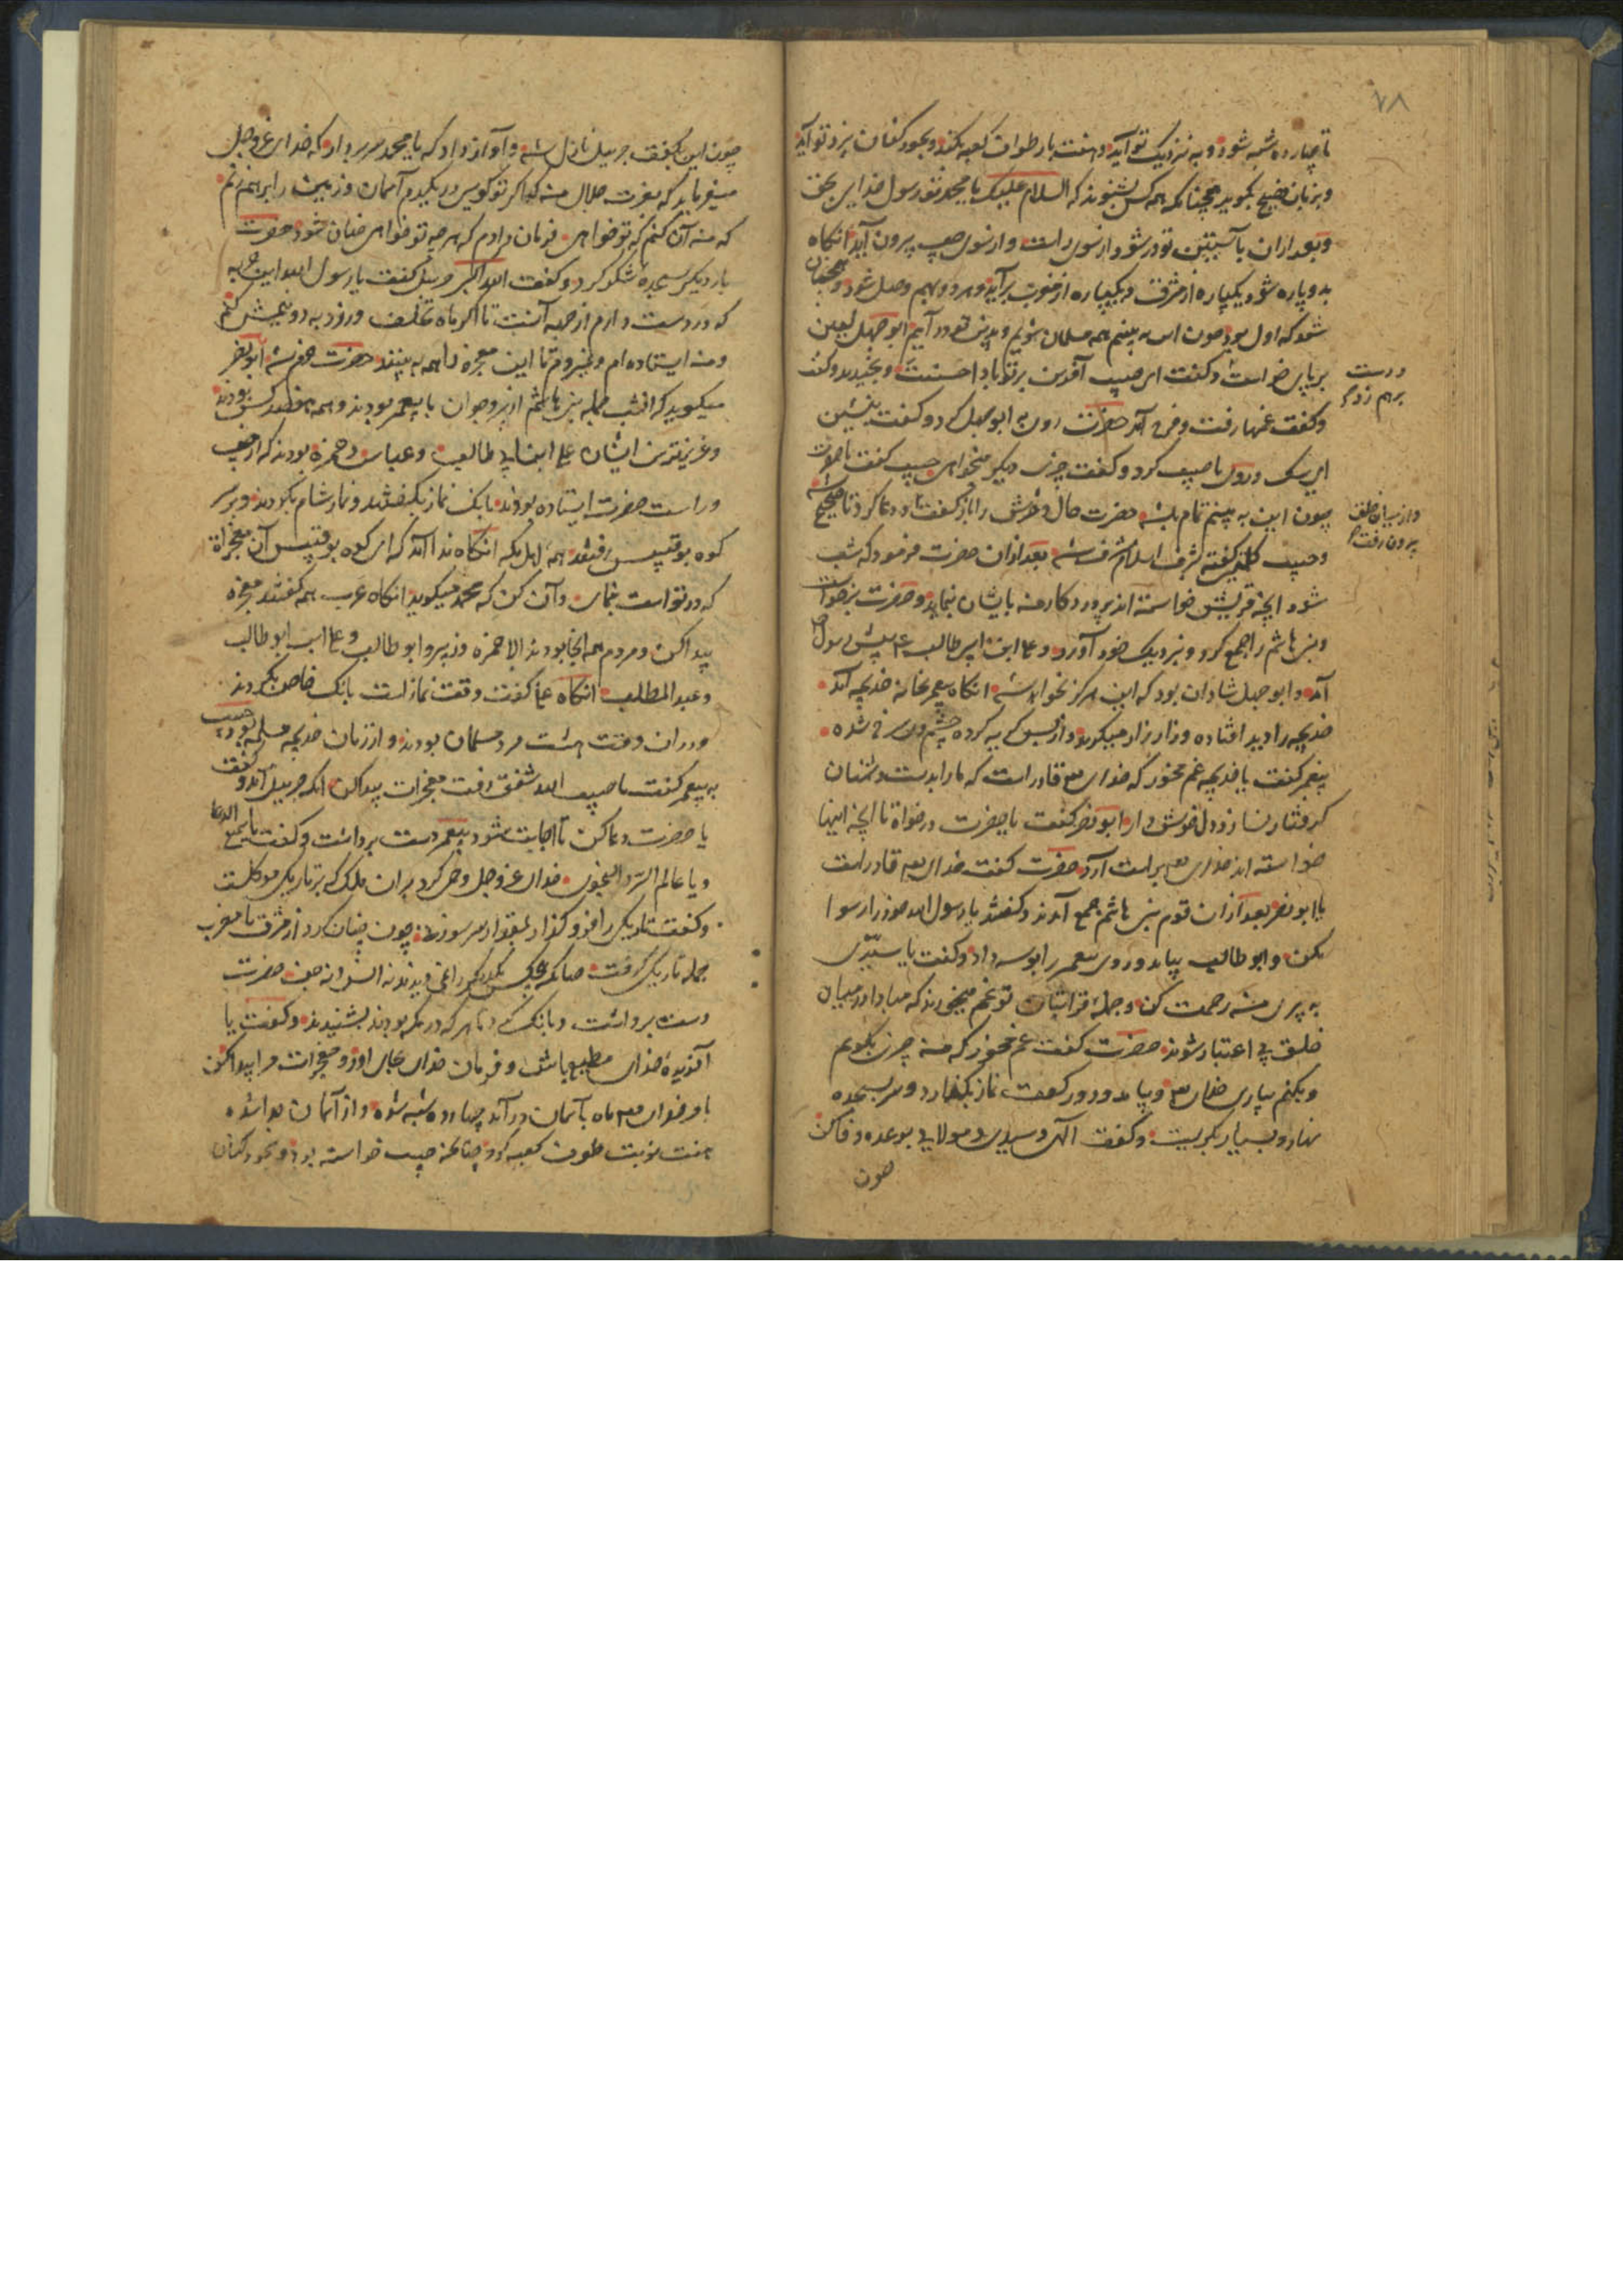 ۷۸
تا چهارده شبه شود و به نزدیک تو آید و هفت بار طواف کعبه بکند و بخورد کنان نزد تو آید
و بزبان فصیح بگوید چنانکه همه کس بشنوند که السلام علیک یا محمد تو رسول خدای بحق
و بعد ازان بآستین تو در شود از سوی راست و از سوی چپ بیرون آید انگاه
بدو پاره شود یکپاره از مشرق و یکپاره از مغرب برآید و هر دو بهم وصل شود و همچنان
شود که اول بود چون این به بینم همه مسلمان شویم و بدین تو در آیم ابو جهل لعین
بر پای خواست و گفت ای حبیب آفرین بر تو باد احسنت و بخندید و گفت
و دست برهم زد
و گفت غمها رفت و فرح آمد حضرت روی به ابو جهل کرد و گفت بنشین
ای سگ و روی با حبیب کرد و گفت چیزی دیگر میخواهی حبیب گفت یا حضرت
چون این به بینم تمام باشد حضرت حال دخترش را باز گفت و دعا کرد تا صحیح شد
و از میان خلق بیرون رفت
و حبیب کلمه گفته بشرف اسلام مشرف شد بعد ازان حضرت فرمود که شب
شود آنچه قریش خواسته اند پروردگار من بایشان نماید و حضرت برخواست
و بنی هاشم را جمع کرد و نزدیک خود آورد و علی ابن ابی طالب ع پیش رسول
آمد و ابو جهل شادان بود که این هرگز نخواهد شد انگاه پیغمبر بخانه خدیجه آمد
خدیجه را دید افتاده و زار زار میگرید و از بس گریه کرده چشم وی سرخ شده
پیغمبر گفت یا خدیجه غم مخور که خدای قادر است که ما را بدست دشمنان
گرفتار نسازد دل خوش دار ابو نضر گفت یا حضرت درخواه تا آنچه اینها
خواسته اند خدای براست آرد حضرت گفت خدای قادر است
یا ابو نضر بعد ازان قوم بنی هاشم جمع آمدند و گفتند یا رسول الله خود را رسوا
مکن و ابو طالب بیامد و روی پیغمبر را بوسه داد و گفت یا سیدی
به پیری من رحمت کن و جمله قرابتان تو غم میخورند که مبادا در میان
خلق بی اعتبار شوند حضرت گفت غم مخور که من چیزی بگویم
و بکنم بیاری خدای و بیامد و دو رکعت نماز بگذارد و سر بسجده
نهاد و بسیار بگریست و گفت الهی و سیدی و مولایی بوعده وفا کن
چون
چون این بگفت جبریل نازل شد و آواز داد که یا محمد سر بردار که خدای عز و جل
میفرماید که بعزت جلال من که اگر تو گویی آسمان و زمین را برهم زنم
که من آن کنم که تو خواهی فرمان دادم که هر چه تو خواهی چنان شود حضرت
بار دیگر سجده شکر کرد و گفت الله اکبر جبریل گفت یا رسول الله این حربه
که در دست دارم از جبه آنست تا اگر ماه تخلف ورزد به دو نیمش کنم
و من ایستاده ام و نمیروم تا این معجزه را همه به بینند حضرت خرم شد ابو نضر
میگوید که آنشب جمله بنی هاشم از پیر و جوان با پیغمبر بودند و همه هفصد کس بودند
و عزیزترین ایشان علی ابن ابی طالب و عباس و حمزه بودند که از چپ
و راست حضرت ایستاده بودند بانگ نماز بگفتند و نماز شام بکردند و بر سر
کوه بوقبیس رفتند همه اهل مکه انگاه ندا آمد که ای کوه بوقبیس آن معجزاة
که در تو است بنمای و آن کن که محمد میگوید انگاه عرب همه گفتند معجزه
پیدا کن و مردم همه آنجا بودند الا حمزه و زبیر و ابو طالب و علی ابن ابو طالب
و عبدالمطلب انگاه علی گفت وقت نماز است بانگ خاص بکردند
و دران وقت هشت مرد مسلمان بودند و از زنان خدیجه مسلمه بود حبیب
به پیغمبر گفت یا حبیب الله شفق رفت معجزات پیدا کن انگه جبریل آمد و گفت
یا حضرت دعا کن تا اجابت شود پیغمبر دست برداشت و گفت یا سمیع الدعا
و یا عالم السر و النجوی خدای عز و جل وحی کرد بران ملک که بر تاریکی موکلست
و گفت تاریکی را فرو گذار بمقدار سر سوزن چون چنان کرد از مشرق تا مغرب
جمله تاریکی گرفت چنانکه هیچکس یکدیگر را نمی دیدند نه انس و نه جن حضرت
دست برداشت و بانگ کرد تا هر که در مکه بودند بشنیدند و گفت یا
آفریده خدای مطیع باش و فرمان خدای بجای آور و معجزات مرا پیدا کن
بامر خدای ماه بآسمان درآمد چهارده شبه شده و از آسمان جدا شده
هفت نوبت طواف کعبه کرد چنانکه حبیب خواسته بود و بخورد کنان